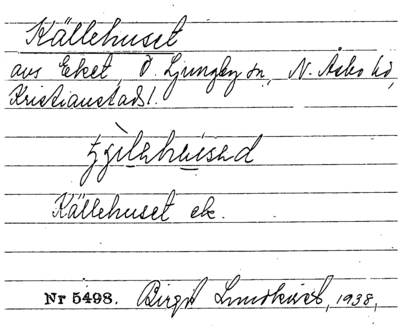 Källehuset
avs Eket, Ö. Ljungby sn, N. Åsbo hd,
Kristianstads l.
Källehuset ek.
Nr 5498. Birgit Lundkvist, 1938,